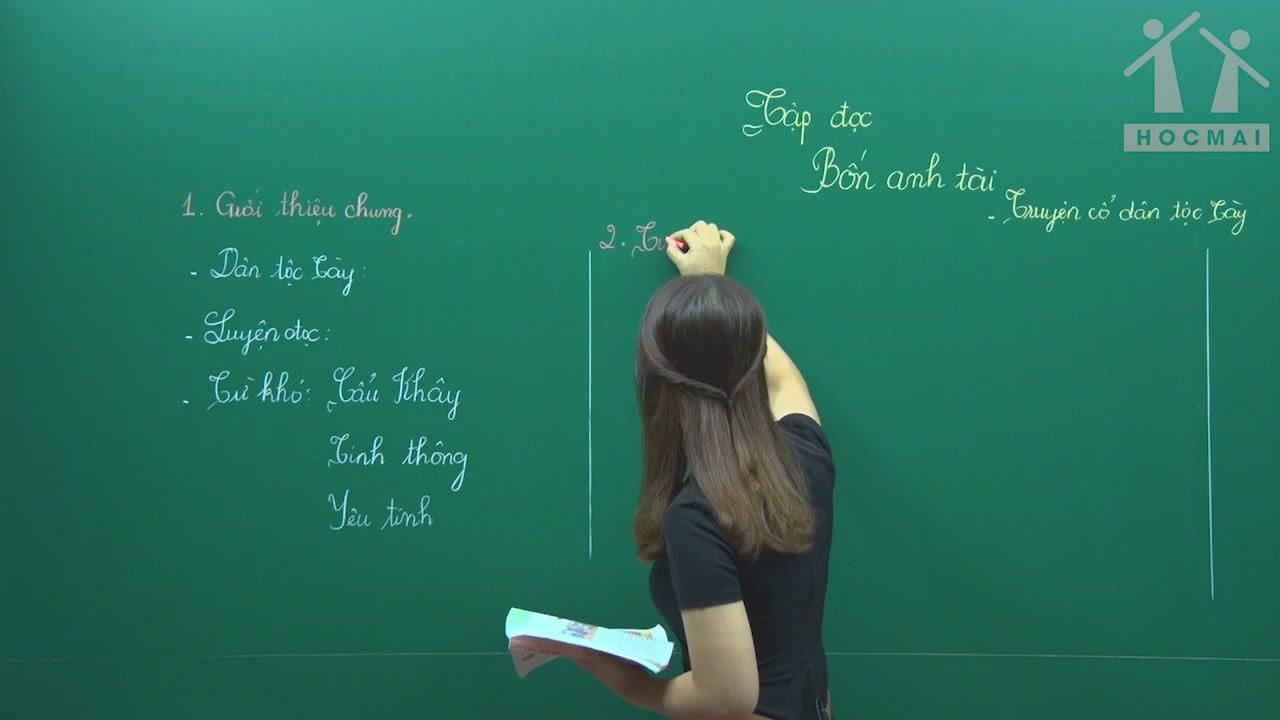 HOCMAI
Tập đọc
Bốn anh tài
- Truyện cổ dân tộc Tày
1. Giới thiệu chung.
- Dân tộc Tày:
- Luyện đọc:
- Từ khó: Cẩu Khây
Tinh thông
Yêu tinh
2.